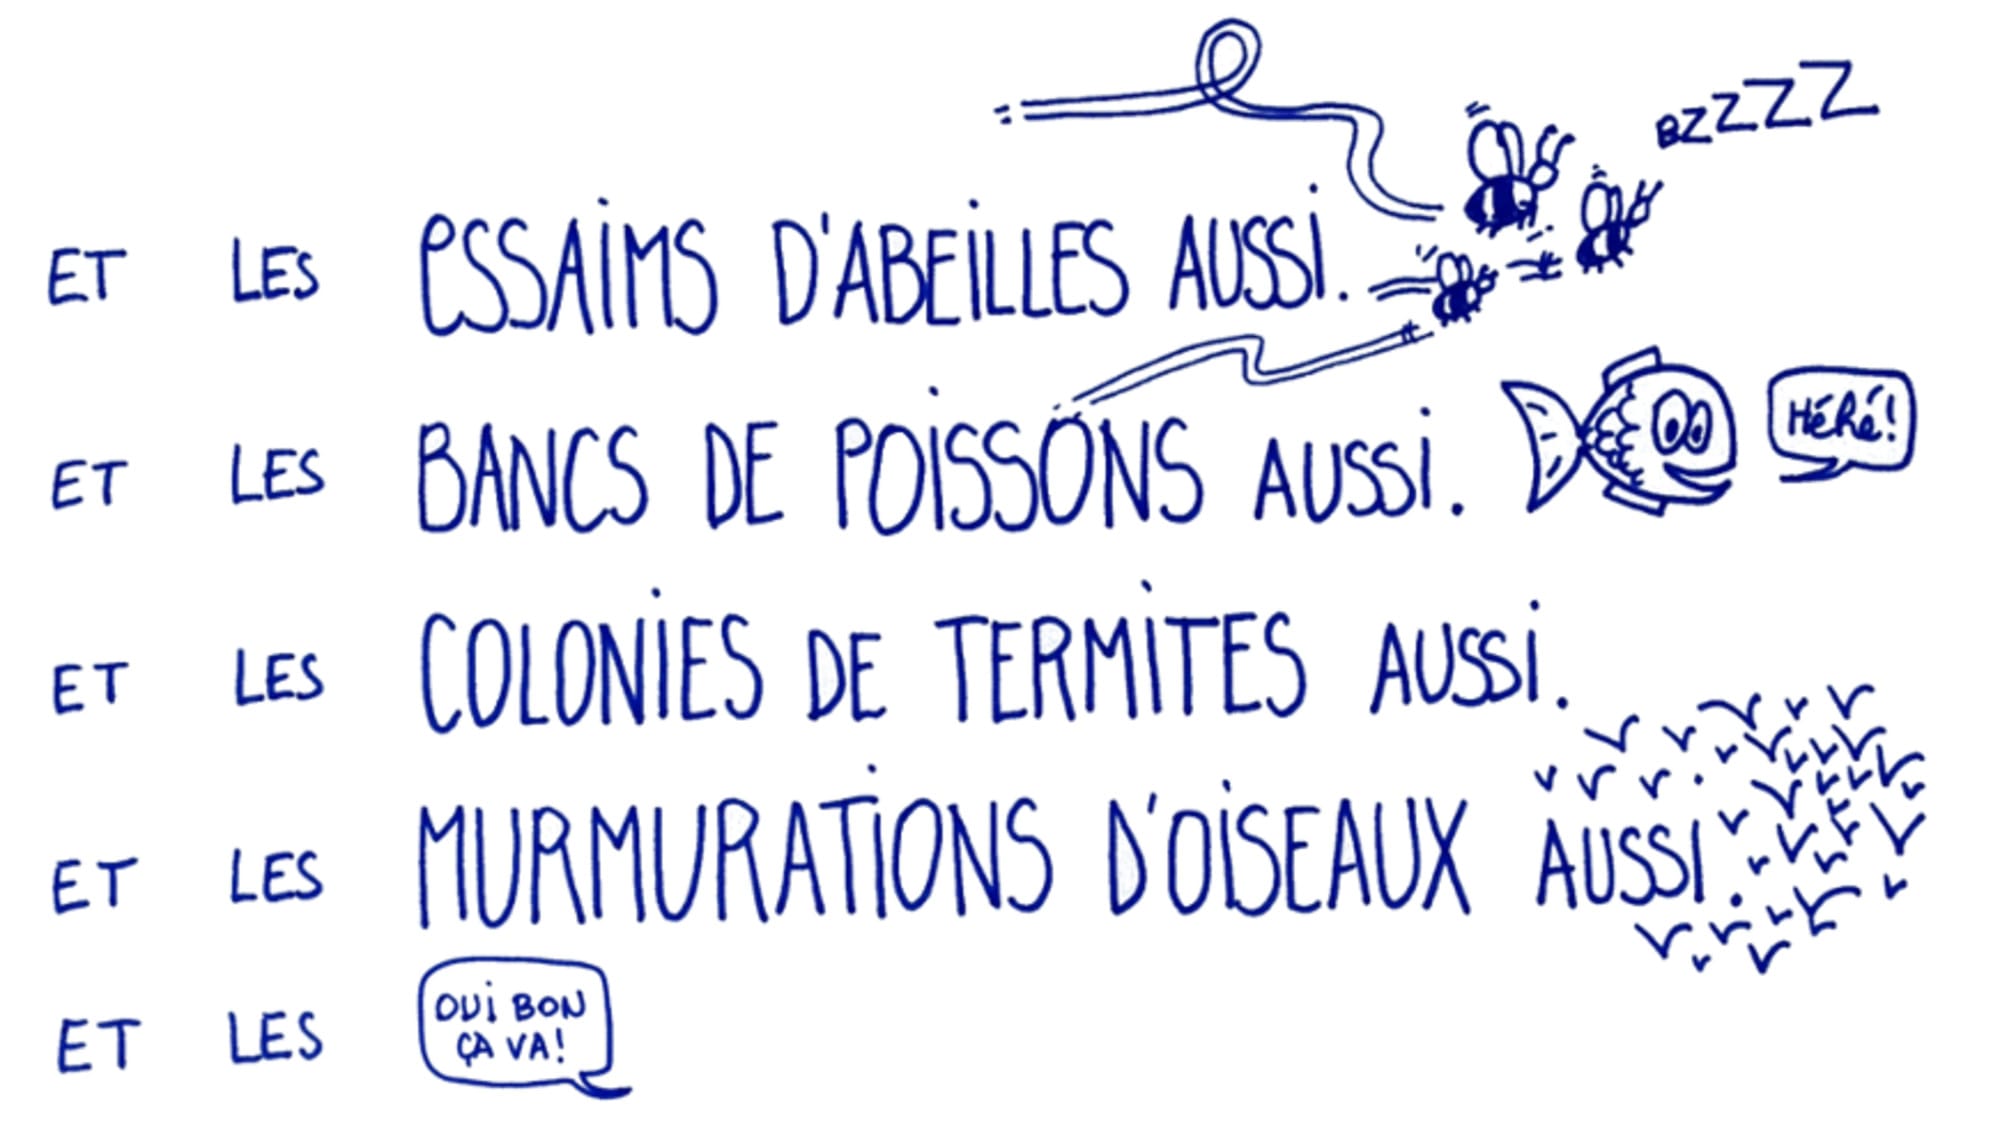 BZZZZZ
ET LES ESSAIMS D'ABEILLES AUSSI.
ET LES BANCS DE POISSONS AUSSI.
HÉHÉ!
ET LES COLONIES DE TERMITES AUSSI.
ET LES MURMURATIONS D'OISEAUX AUSSI.
ET LES
OUI BON
ÇA VA!